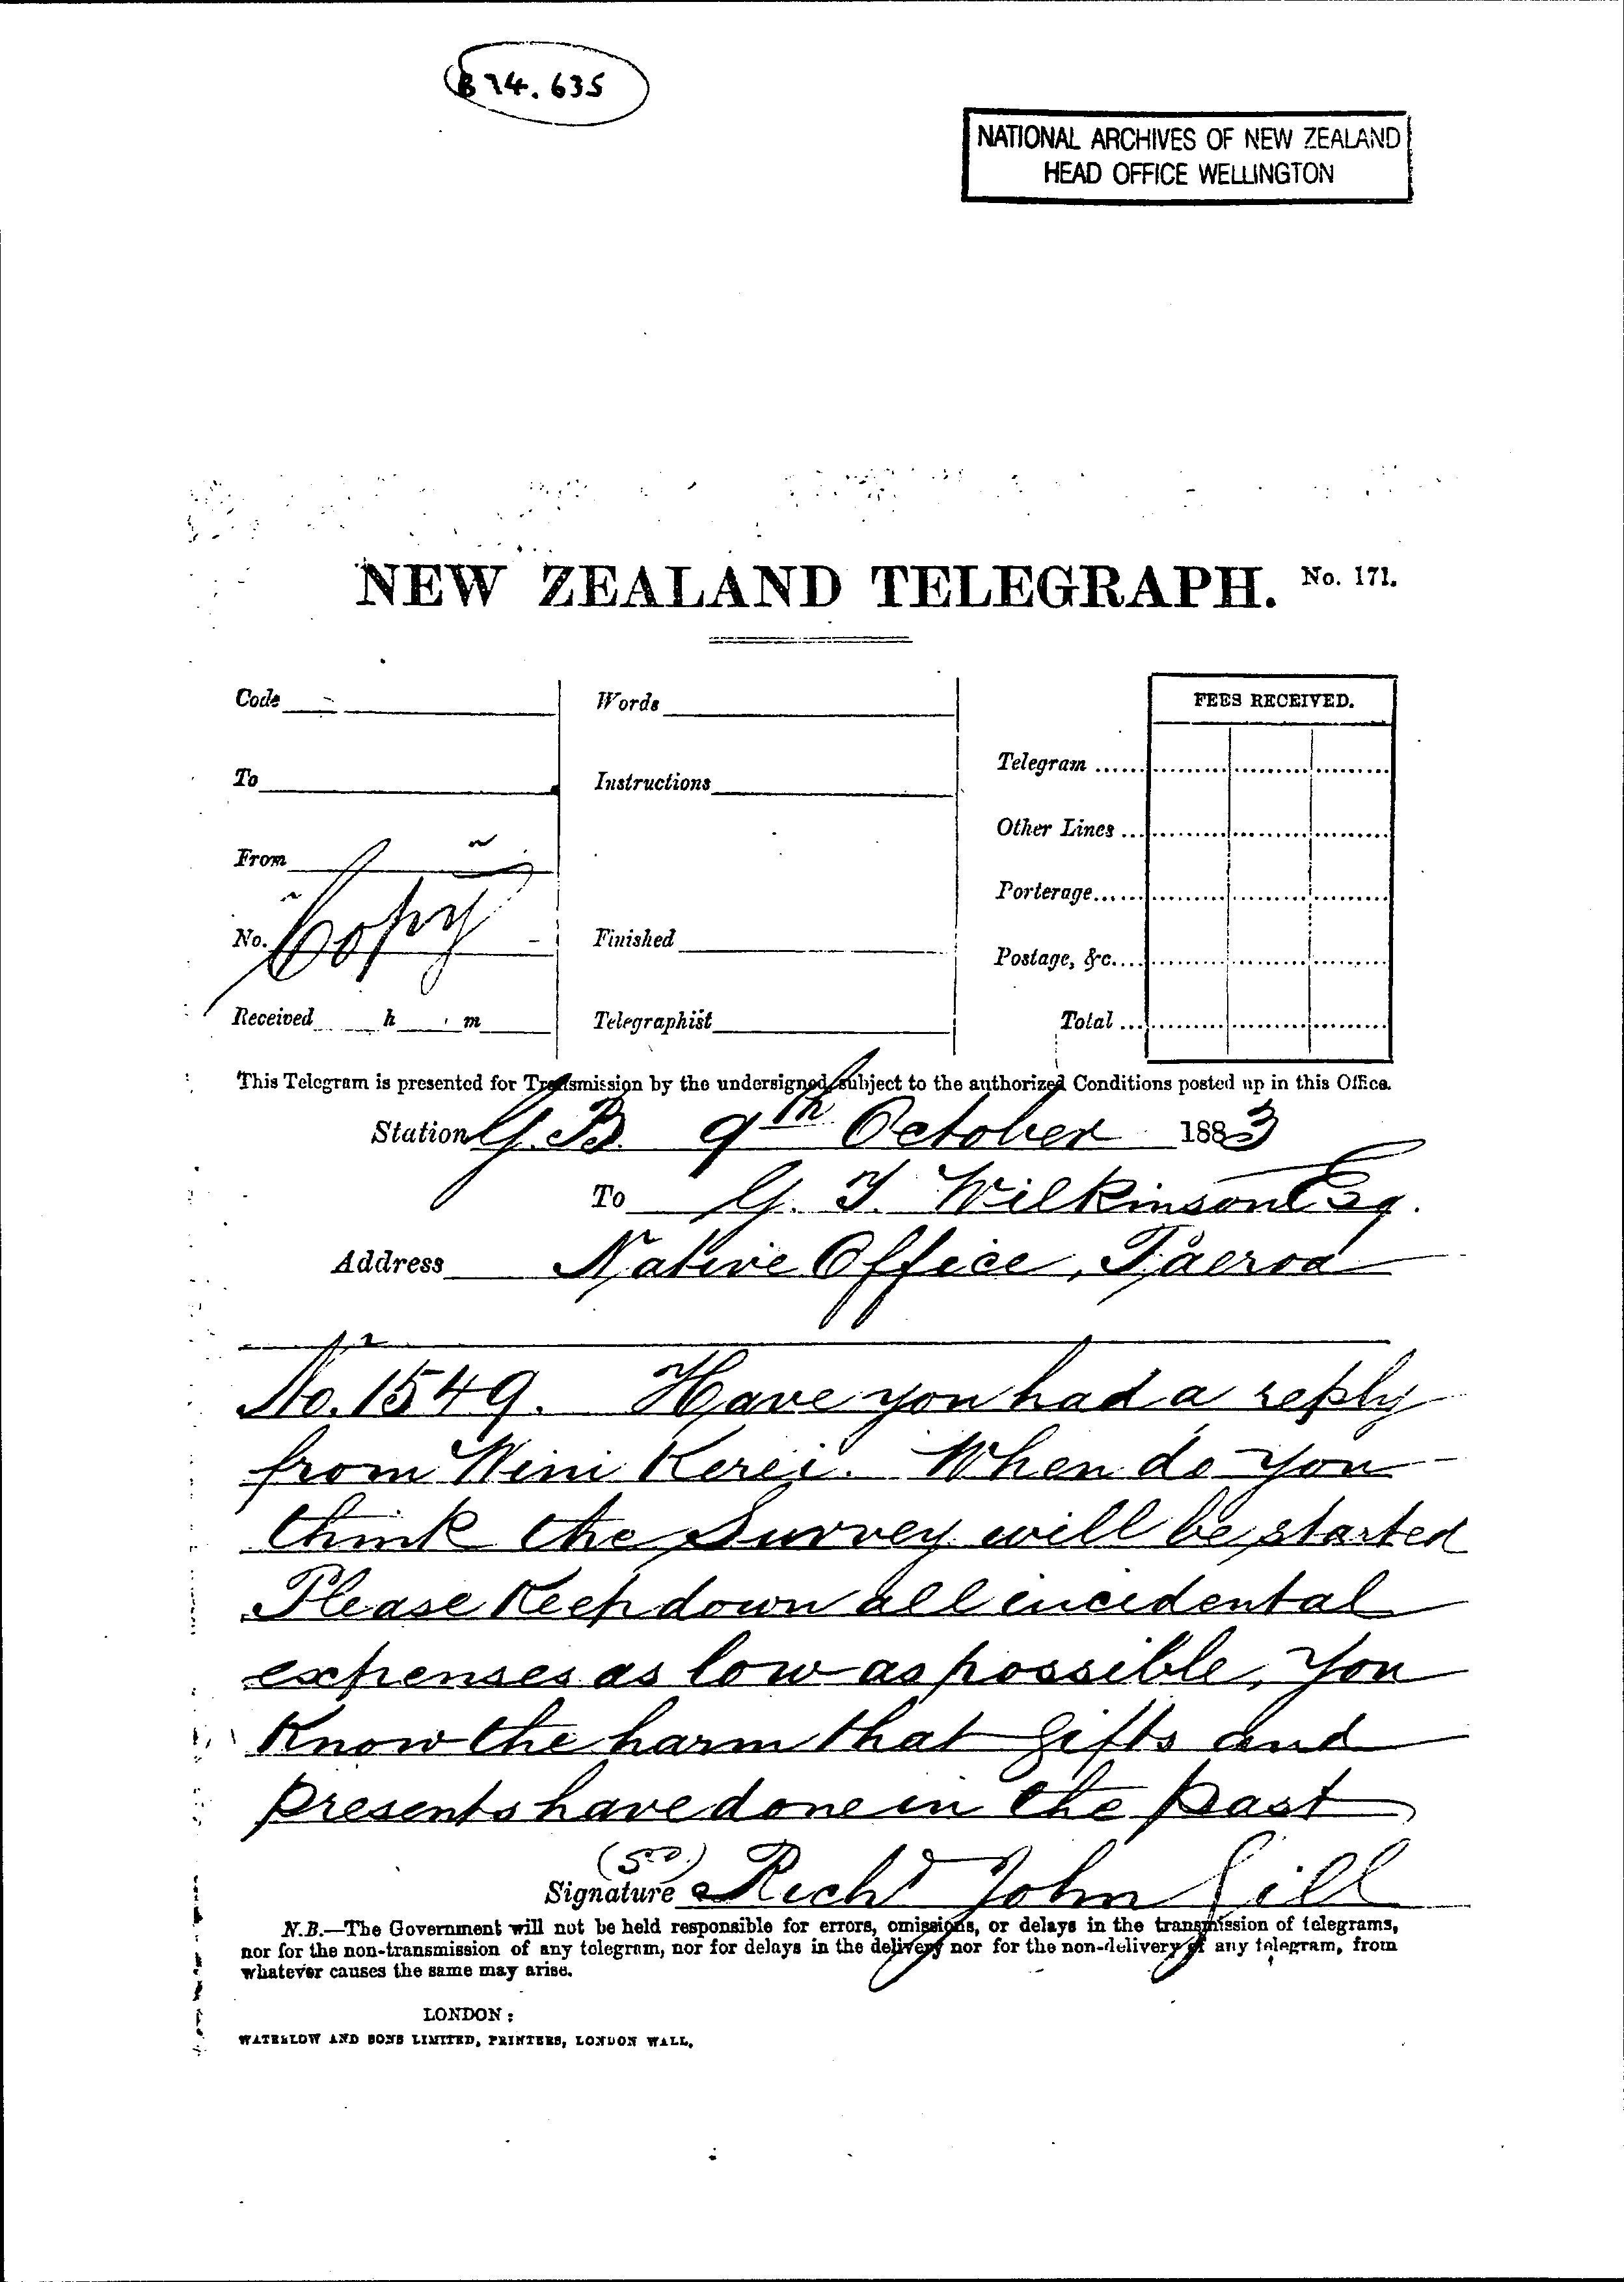 B 74.635
NATIONAL ARCHIVES OF NEW ZEALAND
HEAD OFFICE WELLINGTON
NEW ZEALAND TELEGRAPH. No. 171.
Code
Words
FEES RECEIVED.
Telegram ......
To
Instructions
Other Lines ...
From
Porterage......
No. Copy
Finished
Postage, &c....
Received h m
Telegraphist
Total ...
This Telegram is presented for Transmission by the undersigned, subject to the authorized Conditions posted up in this Office.
Station G. B. 9th October 1883
To G. T. Wilkinson Esq.
Address Native Office, Paeroa
No. 1549. Have you had a reply
from Wini Kerei. When do you
think the Survey will be started
Please Keep down all incidental
expenses as low as possible, you
Know the harm that gifts and
presents have done in the past
(sd.)
Signature Richd John Gill
N.B.—The Government will not be held responsible for errors, omissions, or delays in the transmission of telegrams,
nor for the non-transmission of any telegram, nor for delays in the delivery nor for the non-delivery of any telegram, from
whatever causes the same may arise.
LONDON:
WATERLOW AND SONS LIMITED, PRINTERS, LONDON WALL.